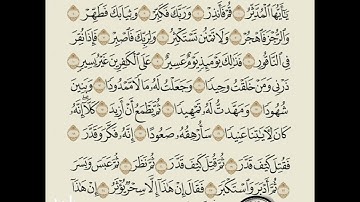 يَٰٓأَيُّهَا ٱلْمُدَّثِّرُ ۝ قُمْ فَأَنذِرْ ۝ وَرَبَّكَ فَكَبِّرْ ۝ وَثِيَابَكَ فَطَهِّرْ ۝
وَٱلرُّجْزَ فَٱهْجُرْ ۝ وَلَا تَمْنُن تَسْتَكْثِرُ ۝ وَلِرَبِّكَ فَٱصْبِرْ ۝ فَإِذَا نُقِرَ
فِى ٱلنَّاقُورِ ۝ فَذَٰلِكَ يَوْمَئِذٍ يَوْمٌ عَسِيرٌ ۝ عَلَى ٱلْكَٰفِرِينَ غَيْرُ يَسِيرٍ ۝
ذَرْنِى وَمَنْ خَلَقْتُ وَحِيدًا ۝ وَجَعَلْتُ لَهُۥ مَالًا مَّمْدُودًا ۝ وَبَنِينَ
شُهُودًا ۝ وَمَهَّدتُّ لَهُۥ تَمْهِيدًا ۝ ثُمَّ يَطْمَعُ أَنْ أَزِيدَ ۝ كَلَّآ إِنَّهُۥ
كَانَ لِءَايَٰتِنَا عَنِيدًا ۝ سَأُرْهِقُهُۥ صَعُودًا ۝ إِنَّهُۥ فَكَّرَ وَقَدَّرَ ۝
فَقُتِلَ كَيْفَ قَدَّرَ ۝ ثُمَّ قُتِلَ كَيْفَ قَدَّرَ ۝ ثُمَّ نَظَرَ ۝ ثُمَّ عَبَسَ وَبَسَرَ ۝
ثُمَّ أَدْبَرَ وَٱسْتَكْبَرَ ۝ فَقَالَ إِنْ هَٰذَآ إِلَّا سِحْرٌ يُؤْثَرُ ۝ إِنْ هَٰذَآ